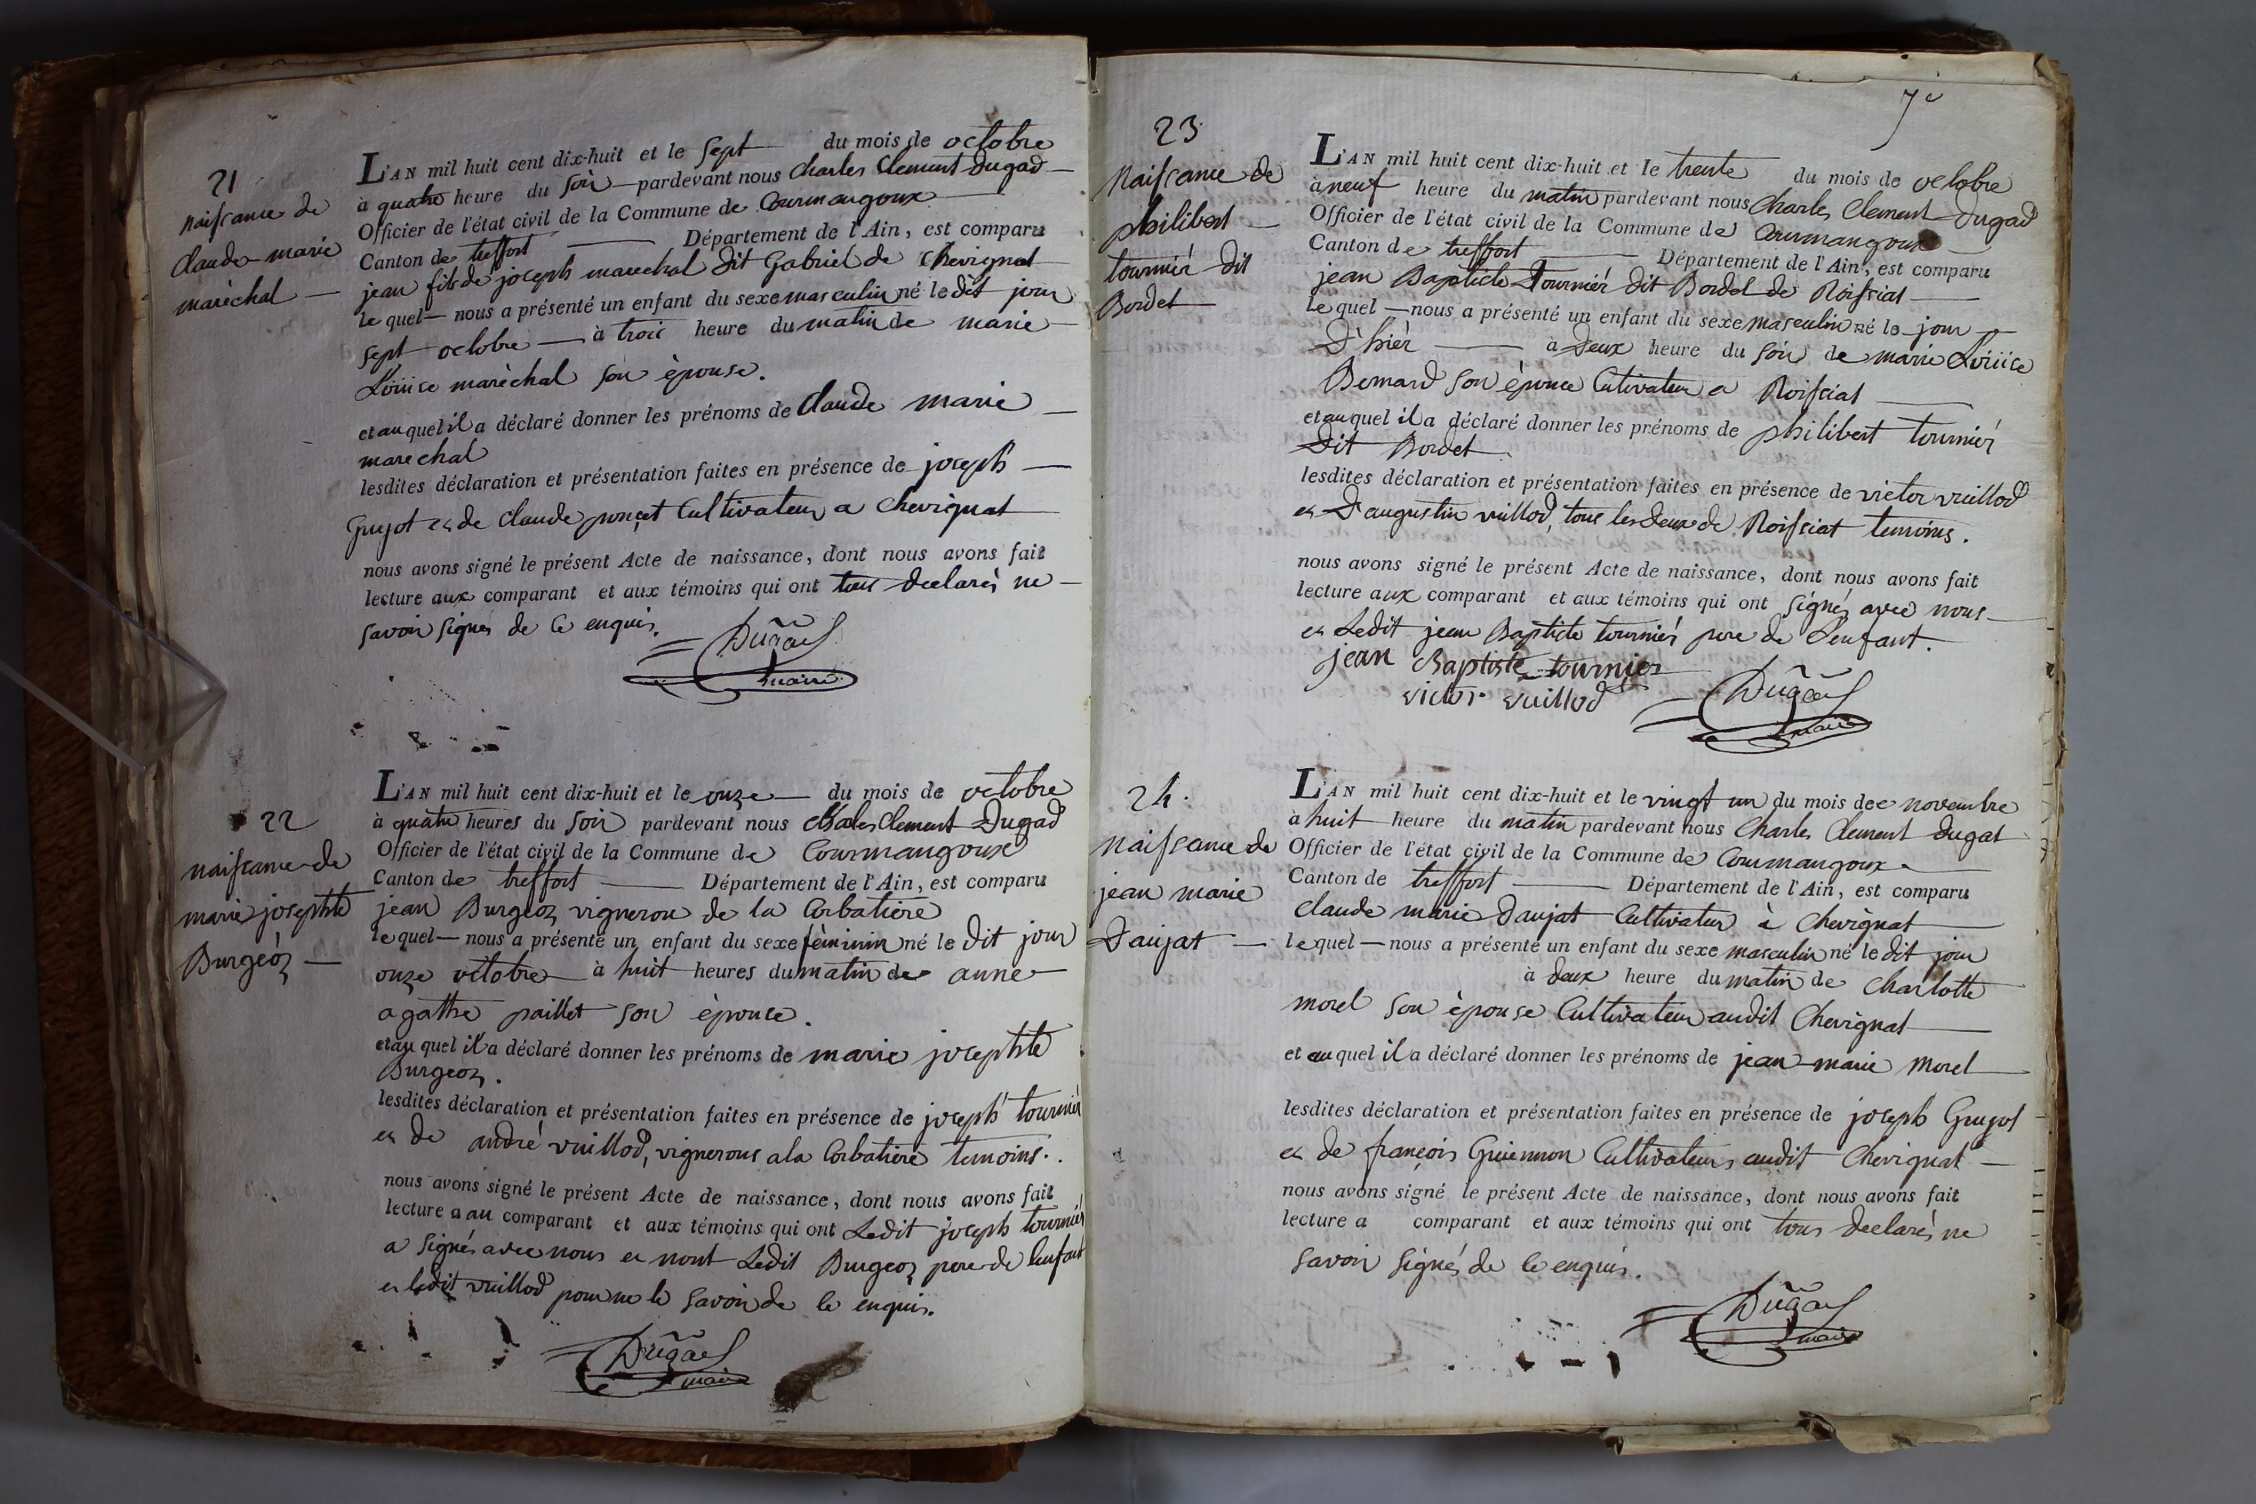 21
naissance de
Claude marie
maréchal —
L'AN mil huit cent dix-huit et le sept du mois de octobre
à quatre heure du soir pardevant nous Charles Clement Dugad
Officier de l'état civil de la Commune de Courmangoux
Canton de treffort Département de l'Ain, est comparu
jean fils de joseph marechal dit Gabriel de Chevignat
lequel nous a présenté un enfant du sexe masculin né le dit jour
sept octobre à trois heure du matin de marie
Louise maréchal son épouse.
et auquel il a déclaré donner les prénoms de Claude marie
marechal
lesdites déclaration et présentation faites en présence de joseph
Guyot et de Claude ponçet Cultivateur a Chevignat
nous avons signé le présent Acte de naissance, dont nous avons fait
lecture aux comparant et aux témoins qui ont tous declarés ne
savoir signés de ce enquis.
Dugad
maire
22
naissance de
marie josephte
Burgeoz
L'AN mil huit cent dix-huit et le onze du mois de octobre
à quatre heures du soir pardevant nous Chales Clement Dugad
Officier de l'état civil de la Commune de Courmangoux
Canton de treffort Département de l'Ain, est comparu
jean Burgeoz vigneron de la Corbatiere
lequel nous a présenté un enfant du sexe féminin né le dit jour
onze octobre à huit heures du matin de anne
agathe paillet son épouce.
et au quel il a déclaré donner les prénoms de marie josephte
Burgeoz.
lesdites déclaration et présentation faites en présence de joseph tournier
et de andré vuillod, vignerons a la Corbatiere temoins.
nous avons signé le présent Acte de naissance, dont nous avons fait
lecture a au comparant et aux témoins qui ont Ledit joseph tournier
a signés avec nous et nont Ledit Burgeoz pere de lenfant
et ledit vuillod pour ne le savoir de ce enquis.
Dugad
maire
7e
23
Naissance de
philibert
tournier dit
Bordet
L'AN mil huit cent dix-huit et le trente du mois de octobre
à neuf heure du matin pardevant nous Charles Clement Dugad
Officier de l'état civil de la Commune de Courmangoux
Canton de treffort Département de l'Ain, est comparu
jean Baptiste Tournier dit Bordet de Roissiat
lequel nous a présenté un enfant du sexe masculin né le jour
D'hier à Deux heure du soir de marie Louiice
Bernard son épouce Cutivateur a Roissiat
et au quel il a déclaré donner les prénoms de philibert tournier
Dit Bordet
lesdites déclaration et présentation faites en présence de victor vuillod
et D'augustin vuillod, tous les deux de Roissiat temoins.
nous avons signé le présent Acte de naissance, dont nous avons fait
lecture aux comparant et aux témoins qui ont signés avec nous
et Ledit jean Baptiste tournier pere de L'enfant.
jean Baptiste tournier
victor vuillod
Dugad
maire
24.
Naissance de
jean marie
Daujat
L'AN mil huit cent dix-huit et le vingt un du mois de novembre
à huit heure du matin pardevant nous Charles Clement Dugat
Officier de l'état civil de la Commune de Courmangoux
Canton de treffort Département de l'Ain, est comparu
claude marie Daujat Cultivateur à Chevignat
lequel nous a présenté un enfant du sexe masculin né le dit jour
à deux heure du matin de Charlotte
morel son épouse Cultivateur audit Chevignat
et au quel il a déclaré donner les prénoms de jean marie Morel
lesdites déclaration et présentation faites en présence de joseph Guyot
et de françois Guiennon Cultivateurs audit Chevignat
nous avons signé le présent Acte de naissance, dont nous avons fait
lecture a comparant et aux témoins qui ont tous declarés ne
savoir signés de ce enquis.
Dugad
maire